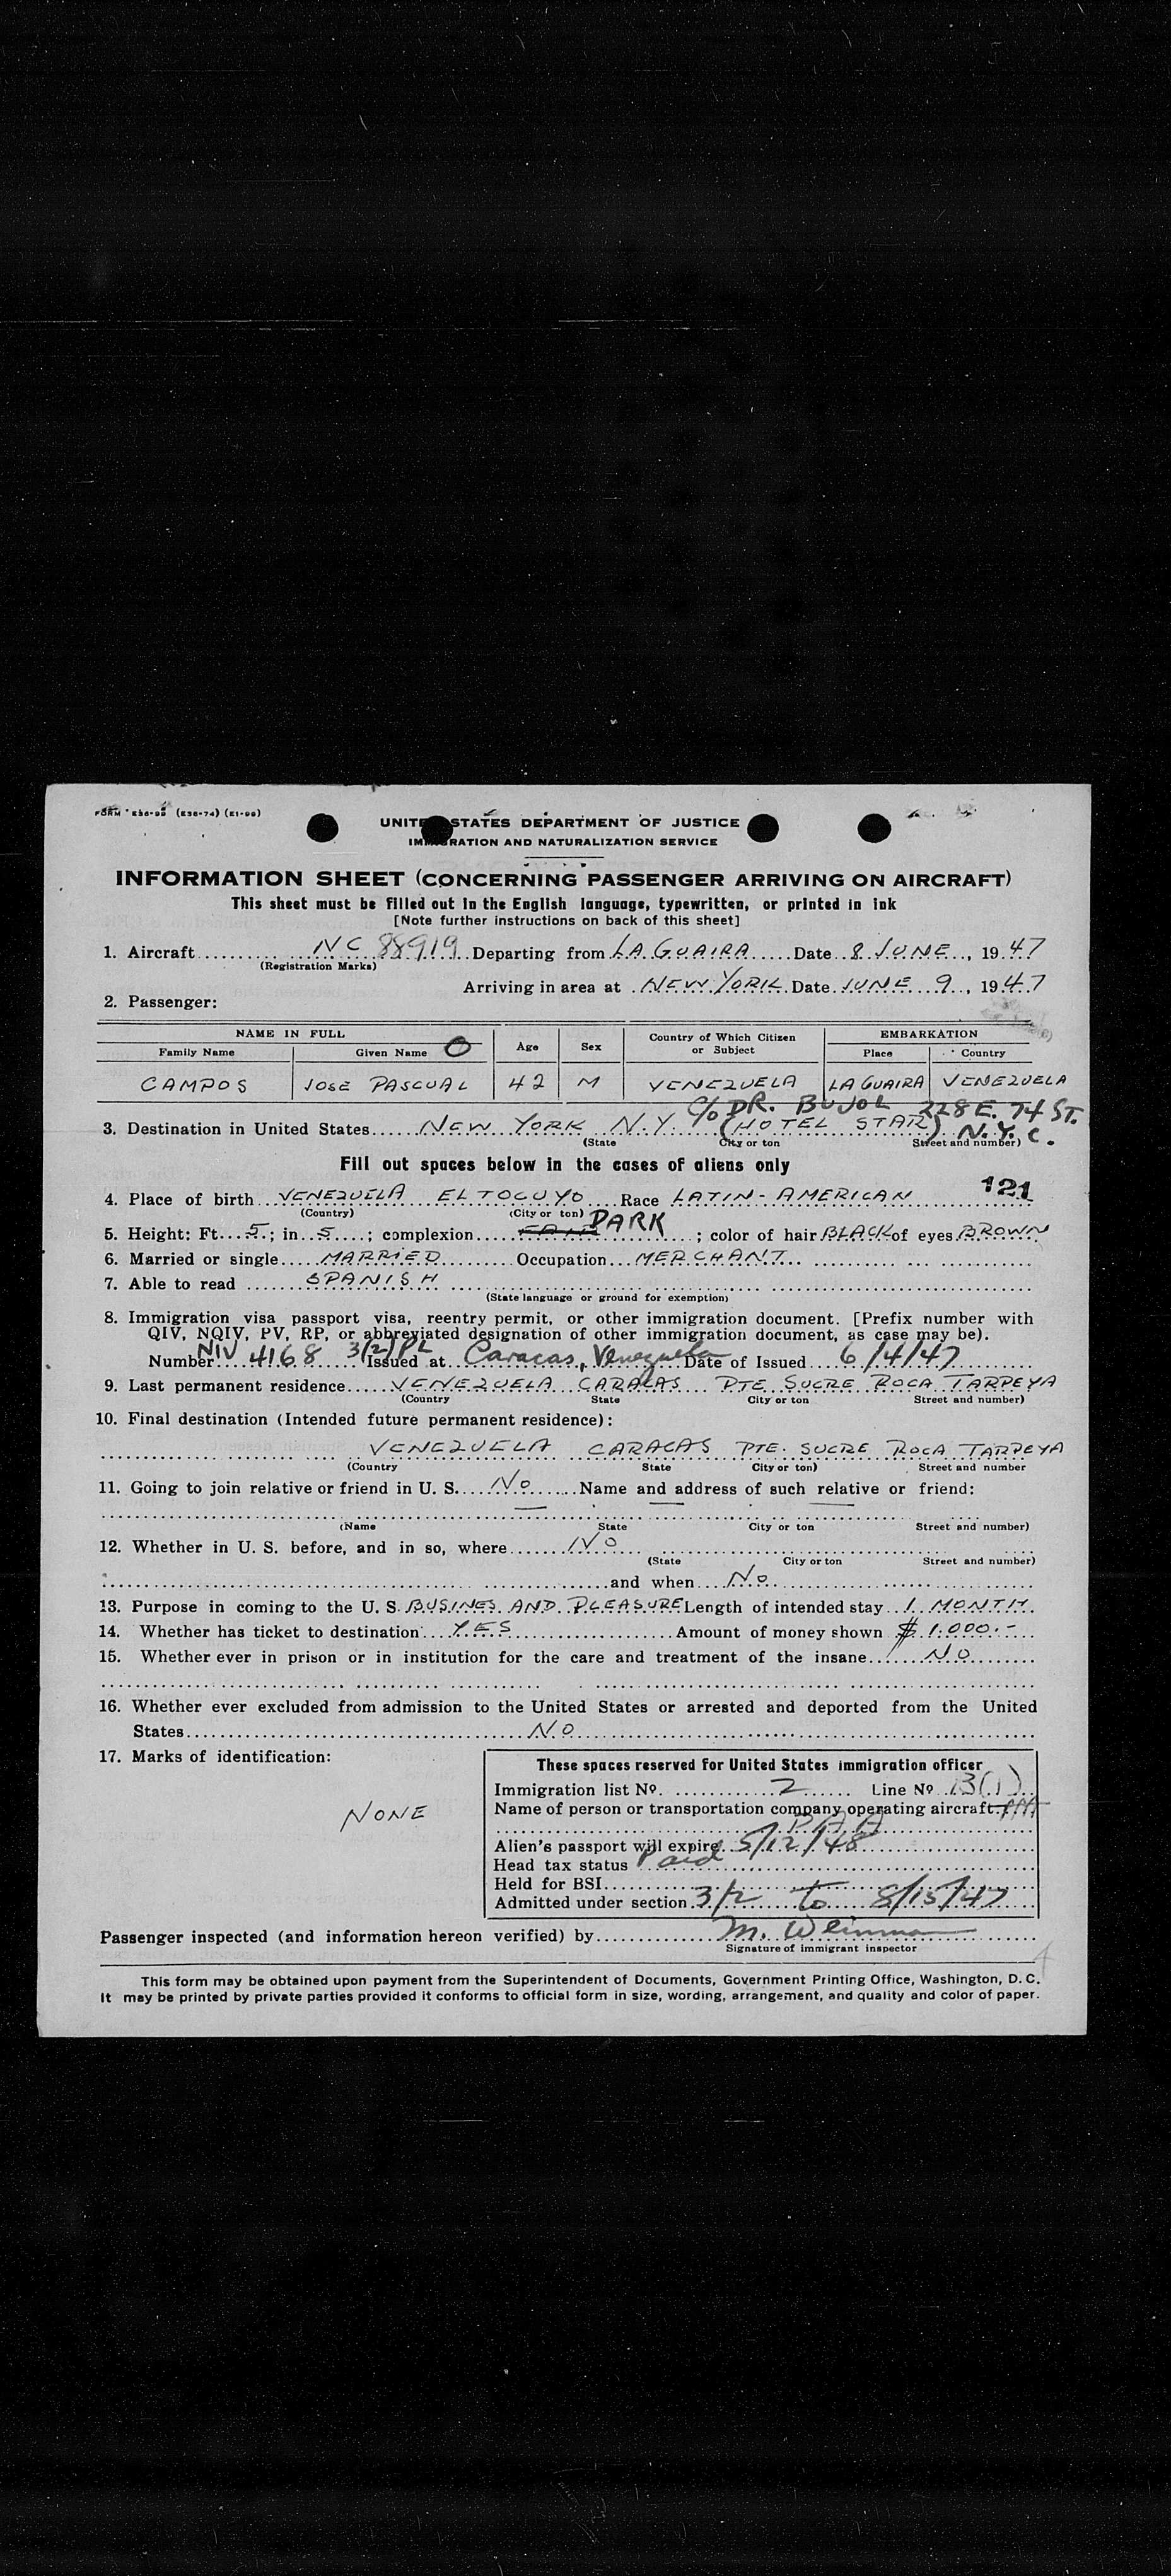 FORM E36-99 (E36-74) (E1-99)
UNITED STATES DEPARTMENT OF JUSTICE
IMMIGRATION AND NATURALIZATION SERVICE
INFORMATION SHEET (CONCERNING PASSENGER ARRIVING ON AIRCRAFT)
This sheet must be filled out in the English language, typewritten, or printed in ink
[Note further instructions on back of this sheet]
1. Aircraft NC 88919 Departing from LA GUAIRA Date 8 JUNE, 1947
(Registration Marks)
Arriving in area at NEW YORK Date JUNE 9, 1947
2. Passenger:
NAME IN FULL Age Sex Country of Which Citizen or Subject EMBARKATION
Family Name Given Name Place Country
CAMPOS JOSE PASCUAL 42 M VENEZUELA LA GUAIRA VENEZUELA
C/o DR. BUJOL 228 E. 74 ST.
3. Destination in United States NEW YORK N.Y. (HOTEL STAR) N.Y.C.
(State City or ton Street and number)
Fill out spaces below in the cases of aliens only
4. Place of birth VENEZUELA EL TOCUYO Race LATIN-AMERICAN 121
(Country) (City or ton)
5. Height: Ft. 5; in 5; complexion FAIR DARK; color of hair BLACK of eyes BROWN
6. Married or single MARRIED Occupation MERCHANT
7. Able to read SPANISH
(State language or ground for exemption)
8. Immigration visa passport visa, reentry permit, or other immigration document. [Prefix number with
QIV, NQIV, PV, RP, or abbreviated designation of other immigration document, as case may be).
Number NIV 4168 3(2) PL Issued at Caracas, Venezuela Date of Issued 6/4/47
9. Last permanent residence VENEZUELA CARACAS PTE SUCRE ROCA TARPEYA
(Country State City or ton Street and number)
10. Final destination (Intended future permanent residence):
VENEZUELA CARACAS PTE. SUCRE ROCA TARPEYA
(Country State City or ton) Street and number
11. Going to join relative or friend in U. S. NO Name and address of such relative or friend:
(Name State City or ton Street and number)
12. Whether in U. S. before, and in so, where NO
(State City or ton Street and number)
and when NO
13. Purpose in coming to the U. S. BUSINES AND PLEASURE Length of intended stay 1 MONTH
14. Whether has ticket to destination YES Amount of money shown $ 1.000.-
15. Whether ever in prison or in institution for the care and treatment of the insane NO
16. Whether ever excluded from admission to the United States or arrested and deported from the United
States NO
17. Marks of identification:
NONE
These spaces reserved for United States immigration officer
Immigration list No. 2 Line No 13(1)
Name of person or transportation company operating aircraft
PAA
Alien's passport will expire 5/12/48
Head tax status Paid
Held for BSI
Admitted under section 3/2 to 8/15/47
Passenger inspected (and information hereon verified) by M. Weinman
Signature of immigrant inspector
This form may be obtained upon payment from the Superintendent of Documents, Government Printing Office, Washington, D. C.
It may be printed by private parties provided it conforms to official form in size, wording, arrangement, and quality and color of paper.